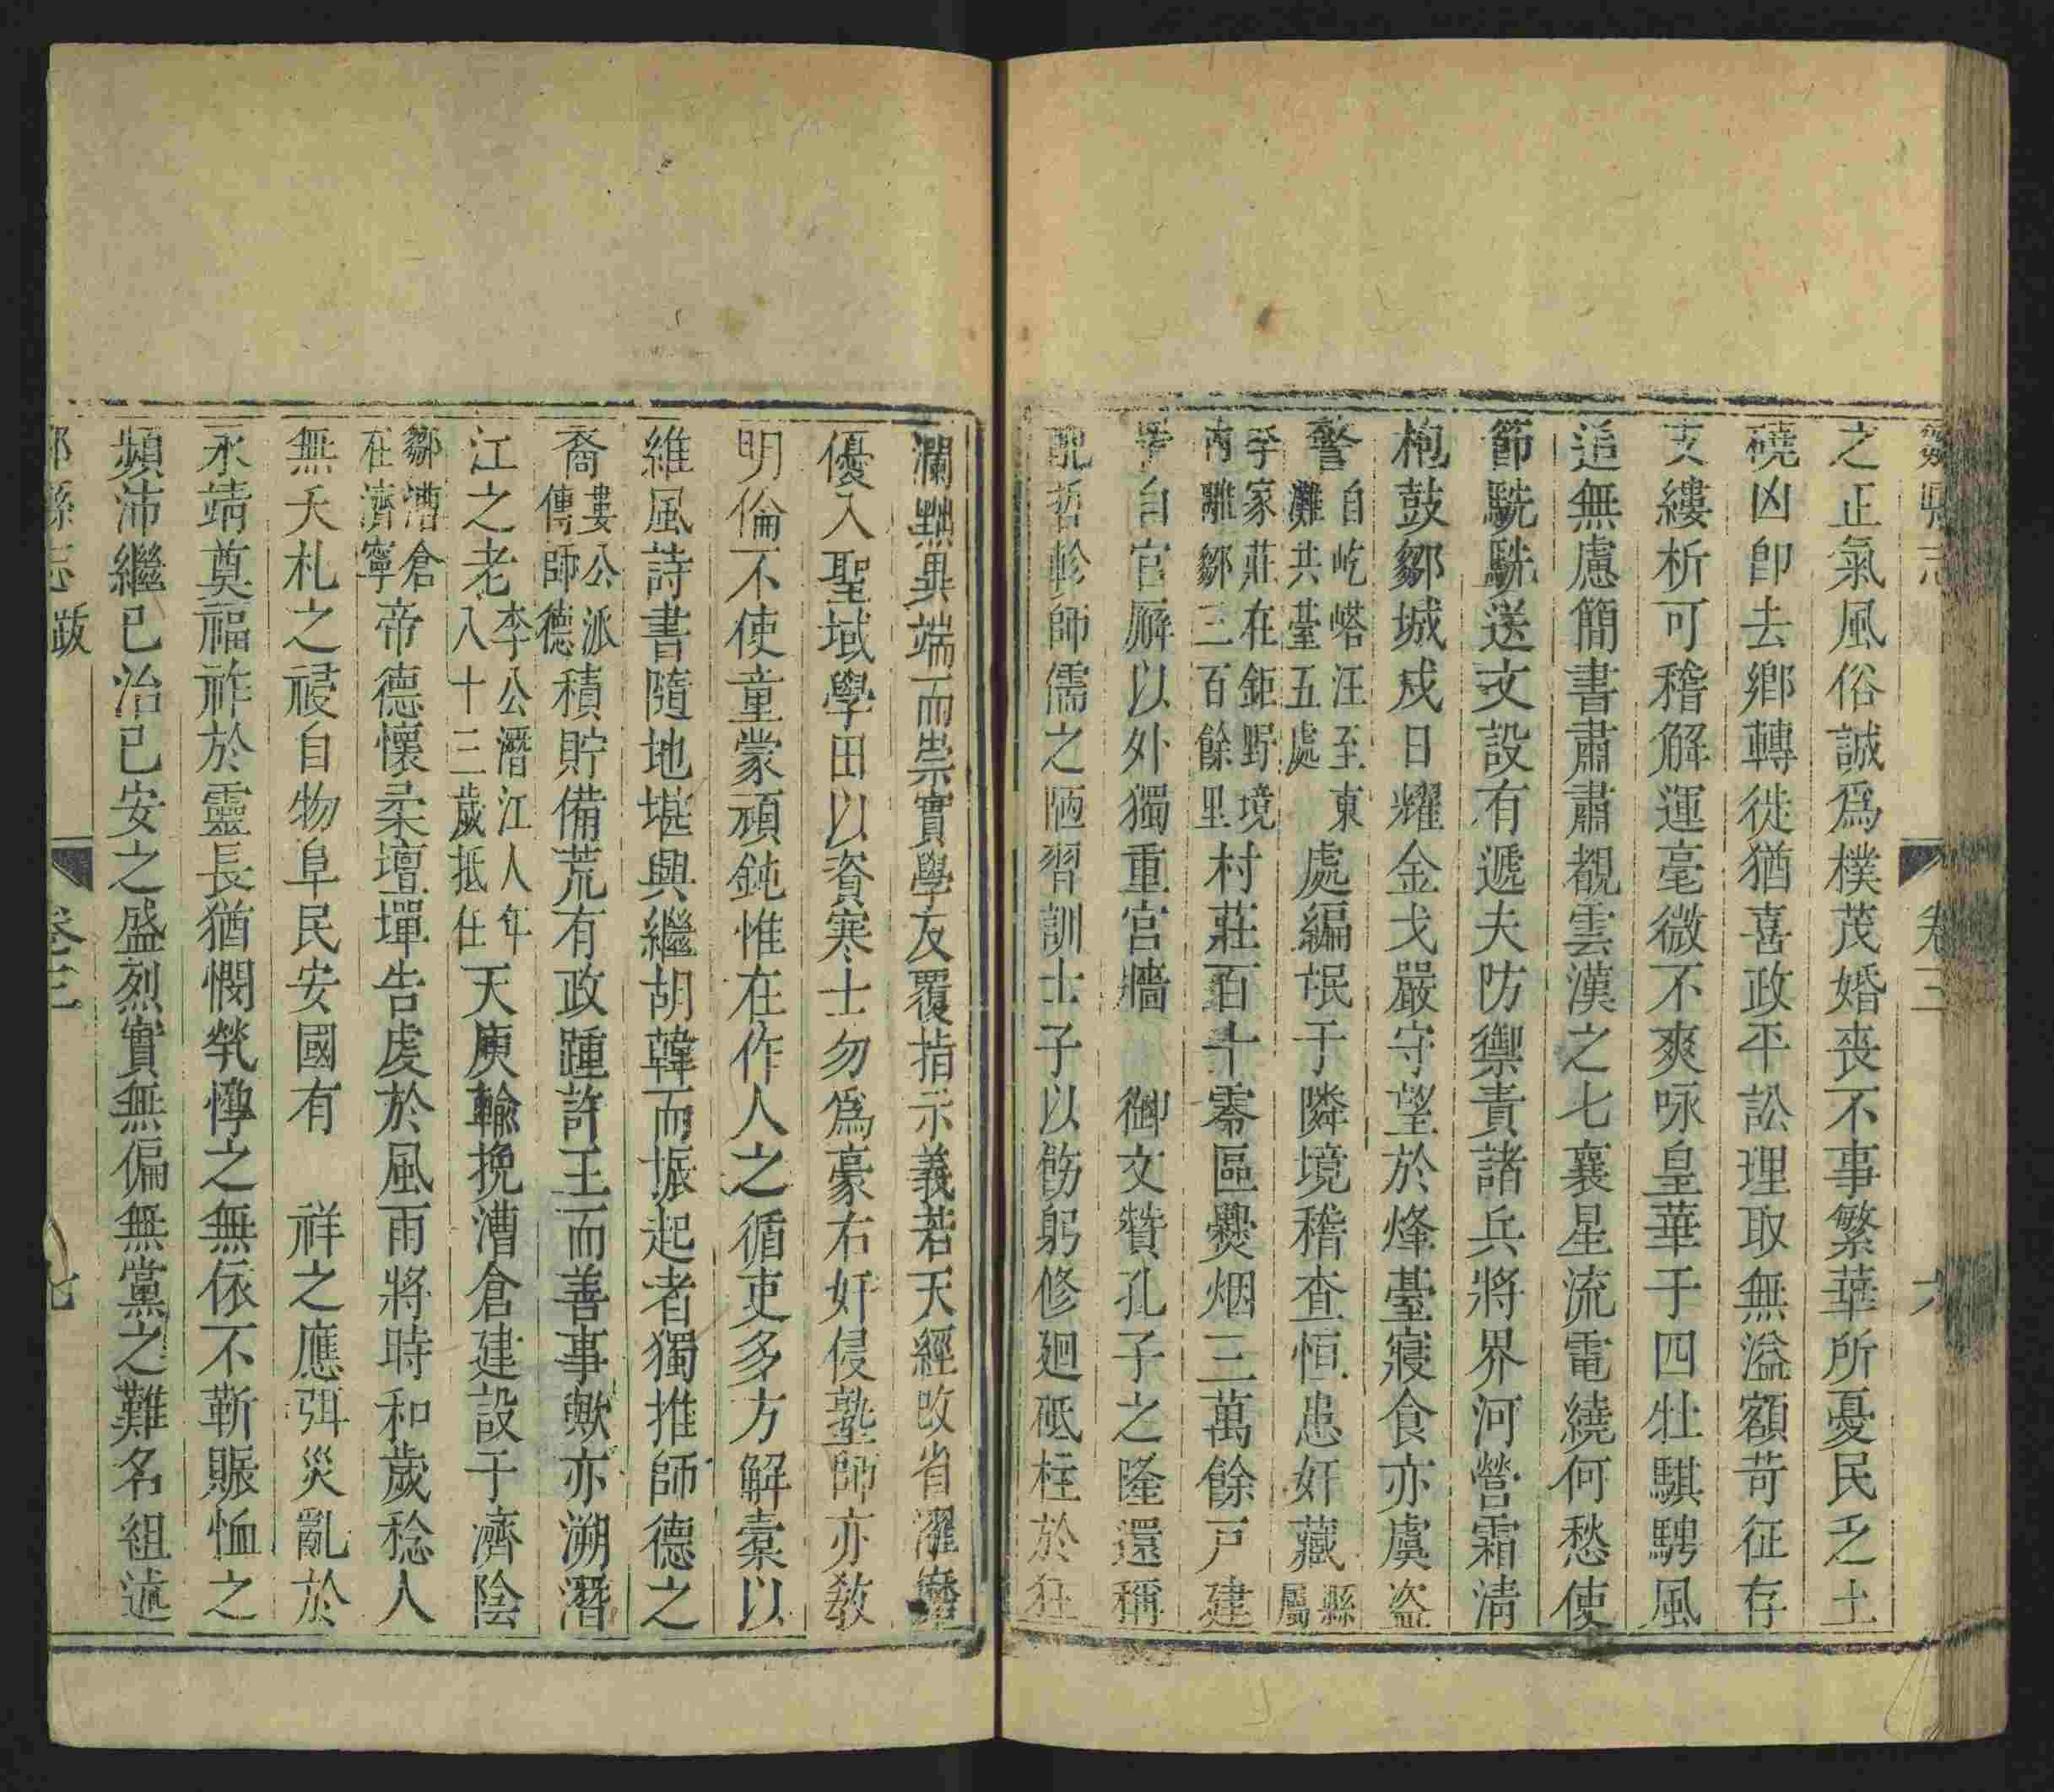 縣志 卷三 六
之正氣風俗誠爲樸茂婚喪不事繁華所憂民乏土
磽凶卽去鄉轉徙猶喜政平訟理取無溢額苛征存
支縷析可稽解運毫微不爽咏皇華于四牡騏騁風
追無慮簡書肅肅覩雲漢之七襄星流電繞何愁使
節駪駪送文設有遞夫防禦責諸兵將界河營霜淸
枹鼓鄒城戍日耀金戈嚴守望於烽臺寢食亦虞盜
警自屹嵧汪至東灘共臺五處處編氓于隣境稽查恒患奸藏縣屬
李家莊在鉅野境內離鄒三百餘里村莊百十零區爨烟三萬餘戸建
學自官廨以外獨重宮牆 御文贊孔子之隆還稱
配哲軫師儒之陋習訓士子以飭躬修廻砥柱於狂
瀾黜異端而崇實學反覆指示義若天經改省濯磨
優入聖域學田以資寒士勿爲豪右奸侵塾師亦敎
明倫不使童蒙頑鈍惟在作人之循吏多方解橐以
維風詩書隨地堪興繼胡韓而振起者獨推師德之
裔婁公派傳師德積貯備荒有政踵許王而善事歟亦溯潛
江之老李公潛江人年八十三歲抵任天庾輸挽漕倉建設于濟陰
鄒漕倉在濟寧帝德懷柔壇墠告虔於風雨將時和歲稔人
無夭札之祲自物阜民安國有 祥之應弭災亂於
永靖奠福祚於靈長猶憫煢惸之無依不靳賑恤之
頻沛繼已治已安之盛烈實無偏無黨之難名組逑
縣志 跋 卷三 七